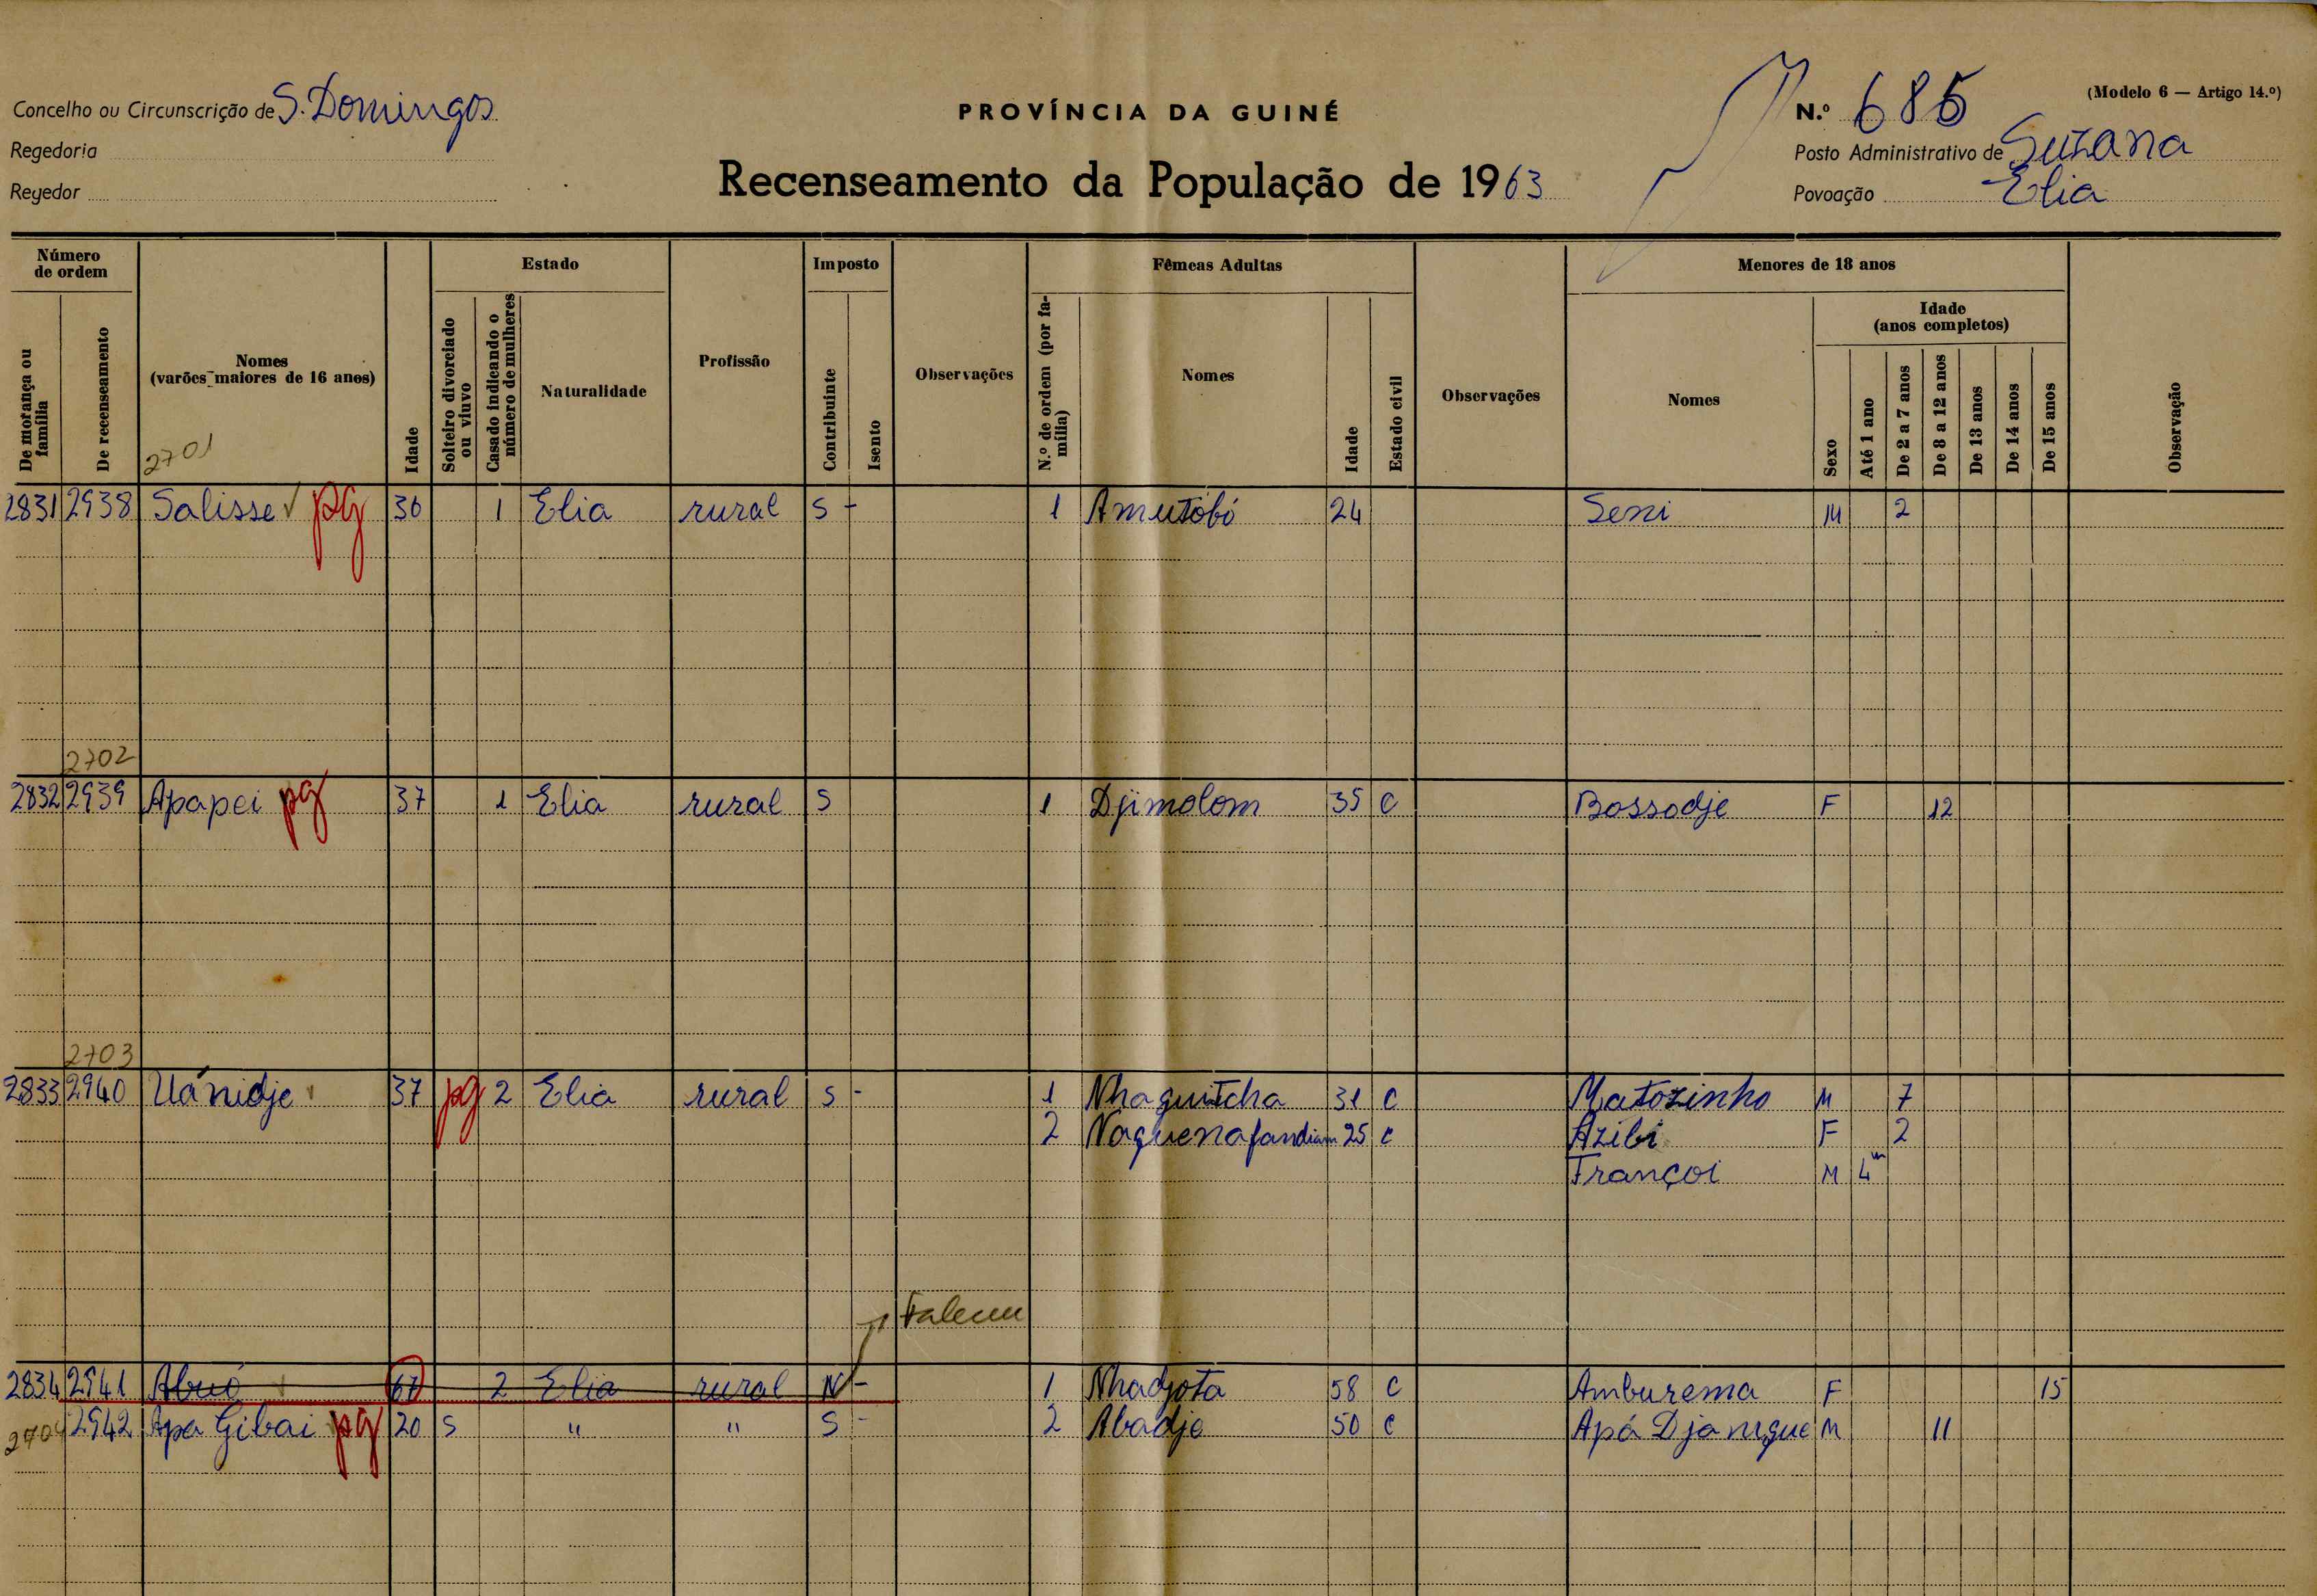 Concelho ou Circunscrição de S. Domingos
Regedoria
Regedor
PROVÍNCIA DA GUINÉ
Recenseamento da População de 1963
(Modelo 6 — Artigo 14.º)
N.º 685
Posto Administrativo de Suzana
Povoação Elia
Número de ordem
De morança ou família
De recenseamento
Nomes
(varões maiores de 16 anos)
2701
Idade
Estado
Solteiro divorciado ou viuvo
Casado indicando o número de mulheres
Naturalidade
Profissão
Imposto
Contribuinte
Isento
Observações
Fêmeas Adultas
N.º de ordem (por família)
Nomes
Idade
Estado civil
Observações
Menores de 18 anos
Nomes
Sexo
Idade
(anos completos)
Até 1 ano
De 2 a 7 anos
De 8 a 12 anos
De 13 anos
De 14 anos
De 15 anos
Observação
2831 2938 Salisse pg 36 1 Elia rural S - 1 Amutóbó 24 Seni M 2
2702
2832 2939 Apapei pg 37 1 Elia rural S 1 Djimolom 35 C Bossodje F 12
2703
2833 2940 Uánidje 37 pg 2 Elia rural S - 1 Nhaguitcha 31 C Matozinho M 7
2 Naquenafandiam 25 C Azibi F 2
Françoi M 4m
Faleceu
2834 2941 Abuó 67 2 Elia rural N - 1 Nhadjota 58 C Amburema F 15
2704 2942 Apa Gibai pg 20 S " " S - 2 Abadje 50 C Apá Djanigue M 11